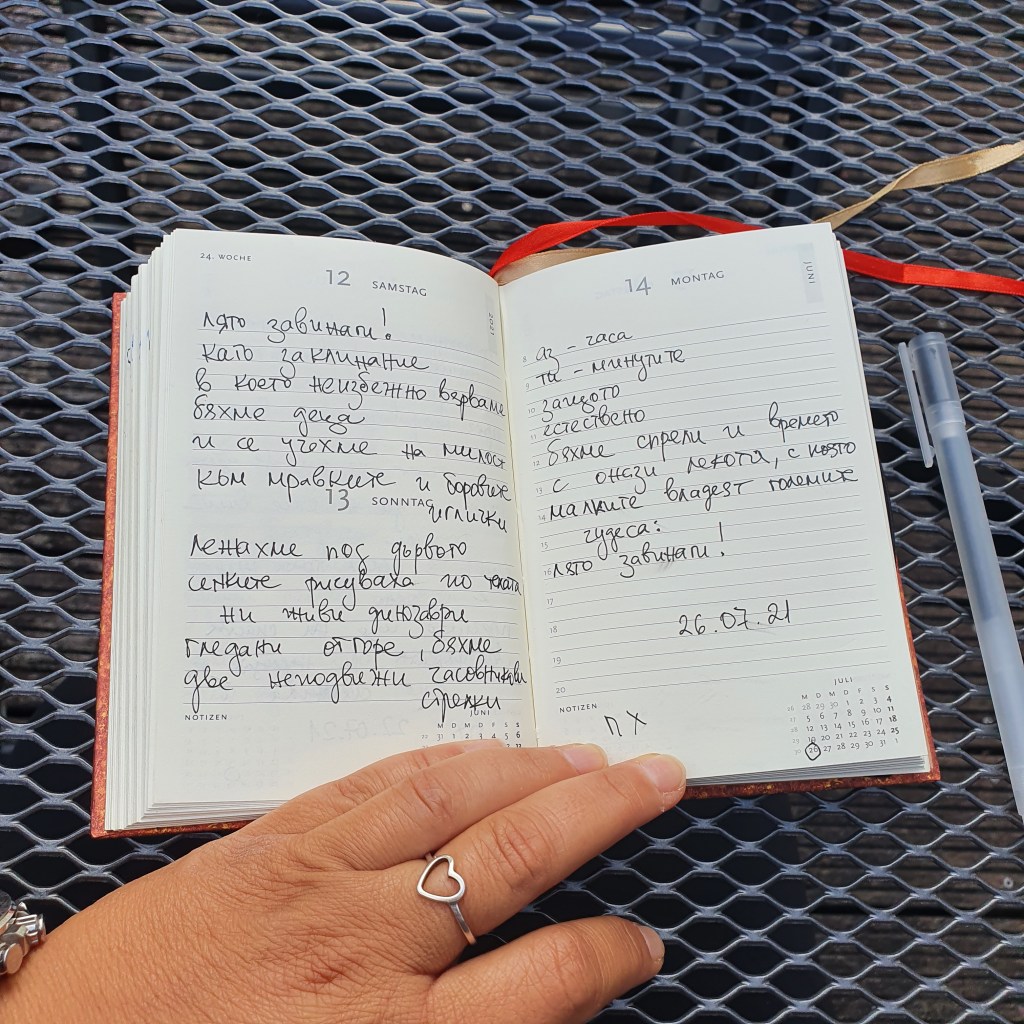 24. WOCHE
12 SAMSTAG
2021
лято завинаги!
като заклинание
в което неизбежно вярваме
бяхме деца
и се учехме на милост
към мравките и боровите
иглички
13 SONNTAG
лежахме под дървото
сенките рисуваха по телата
ни живи динозаври
гледани отгоре, бяхме
две неподвижни часовникови
стрелки
NOTIZEN
JUNI
M D M D F S S
22 31 1 2 3 4 5 6
14 MONTAG
JUNI
8 аз - часа
9 ти - минутите
10 защото
11 естествено
12 бяхме спрели и времето
13 с онази лекота, с която
14 малките владеят големите
15 чудеса:
16 лято завинаги!
17
18 26.07.21
19
20
NOTIZEN
ПХ
JULI
M D M D F S S
26 28 29 30 1 2 3 4
27 5 6 7 8 9 10 11
28 12 13 14 15 16 17 18
29 19 20 21 22 23 24 25
30 26 27 28 29 30 31 1